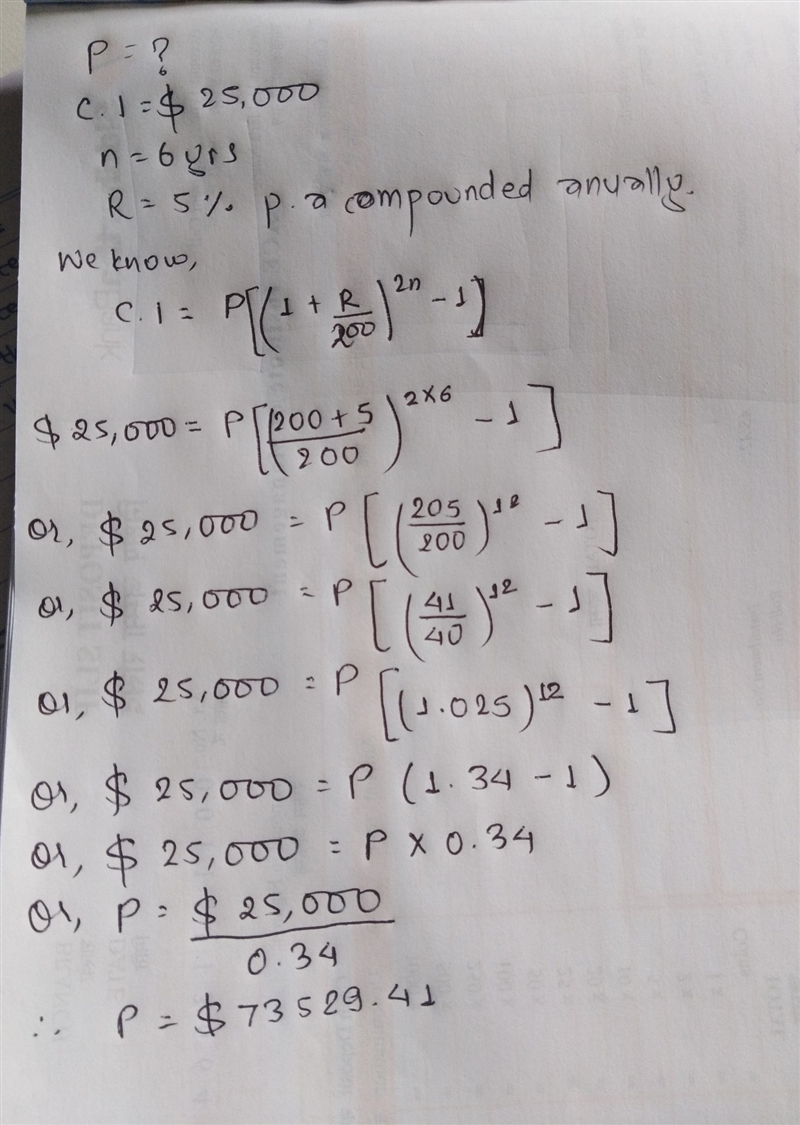 P = ?
C.I = $ 25,000
n = 6 yrs
R = 5% p.a compounded anually.
We know,
C.I = P[(1 + R/200)^2n - 1]
$ 25,000 = P[(200+5/200)^2×6 - 1]
Or, $ 25,000 = P[(205/200)^12 - 1]
Or, $ 25,000 = P[(41/40)^12 - 1]
Or, $ 25,000 = P[(1.025)^12 - 1]
Or, $ 25,000 = P (1.34 - 1)
Or, $ 25,000 = P × 0.34
Or, P = $ 25,000/0.34
∴ P = $ 73529.41